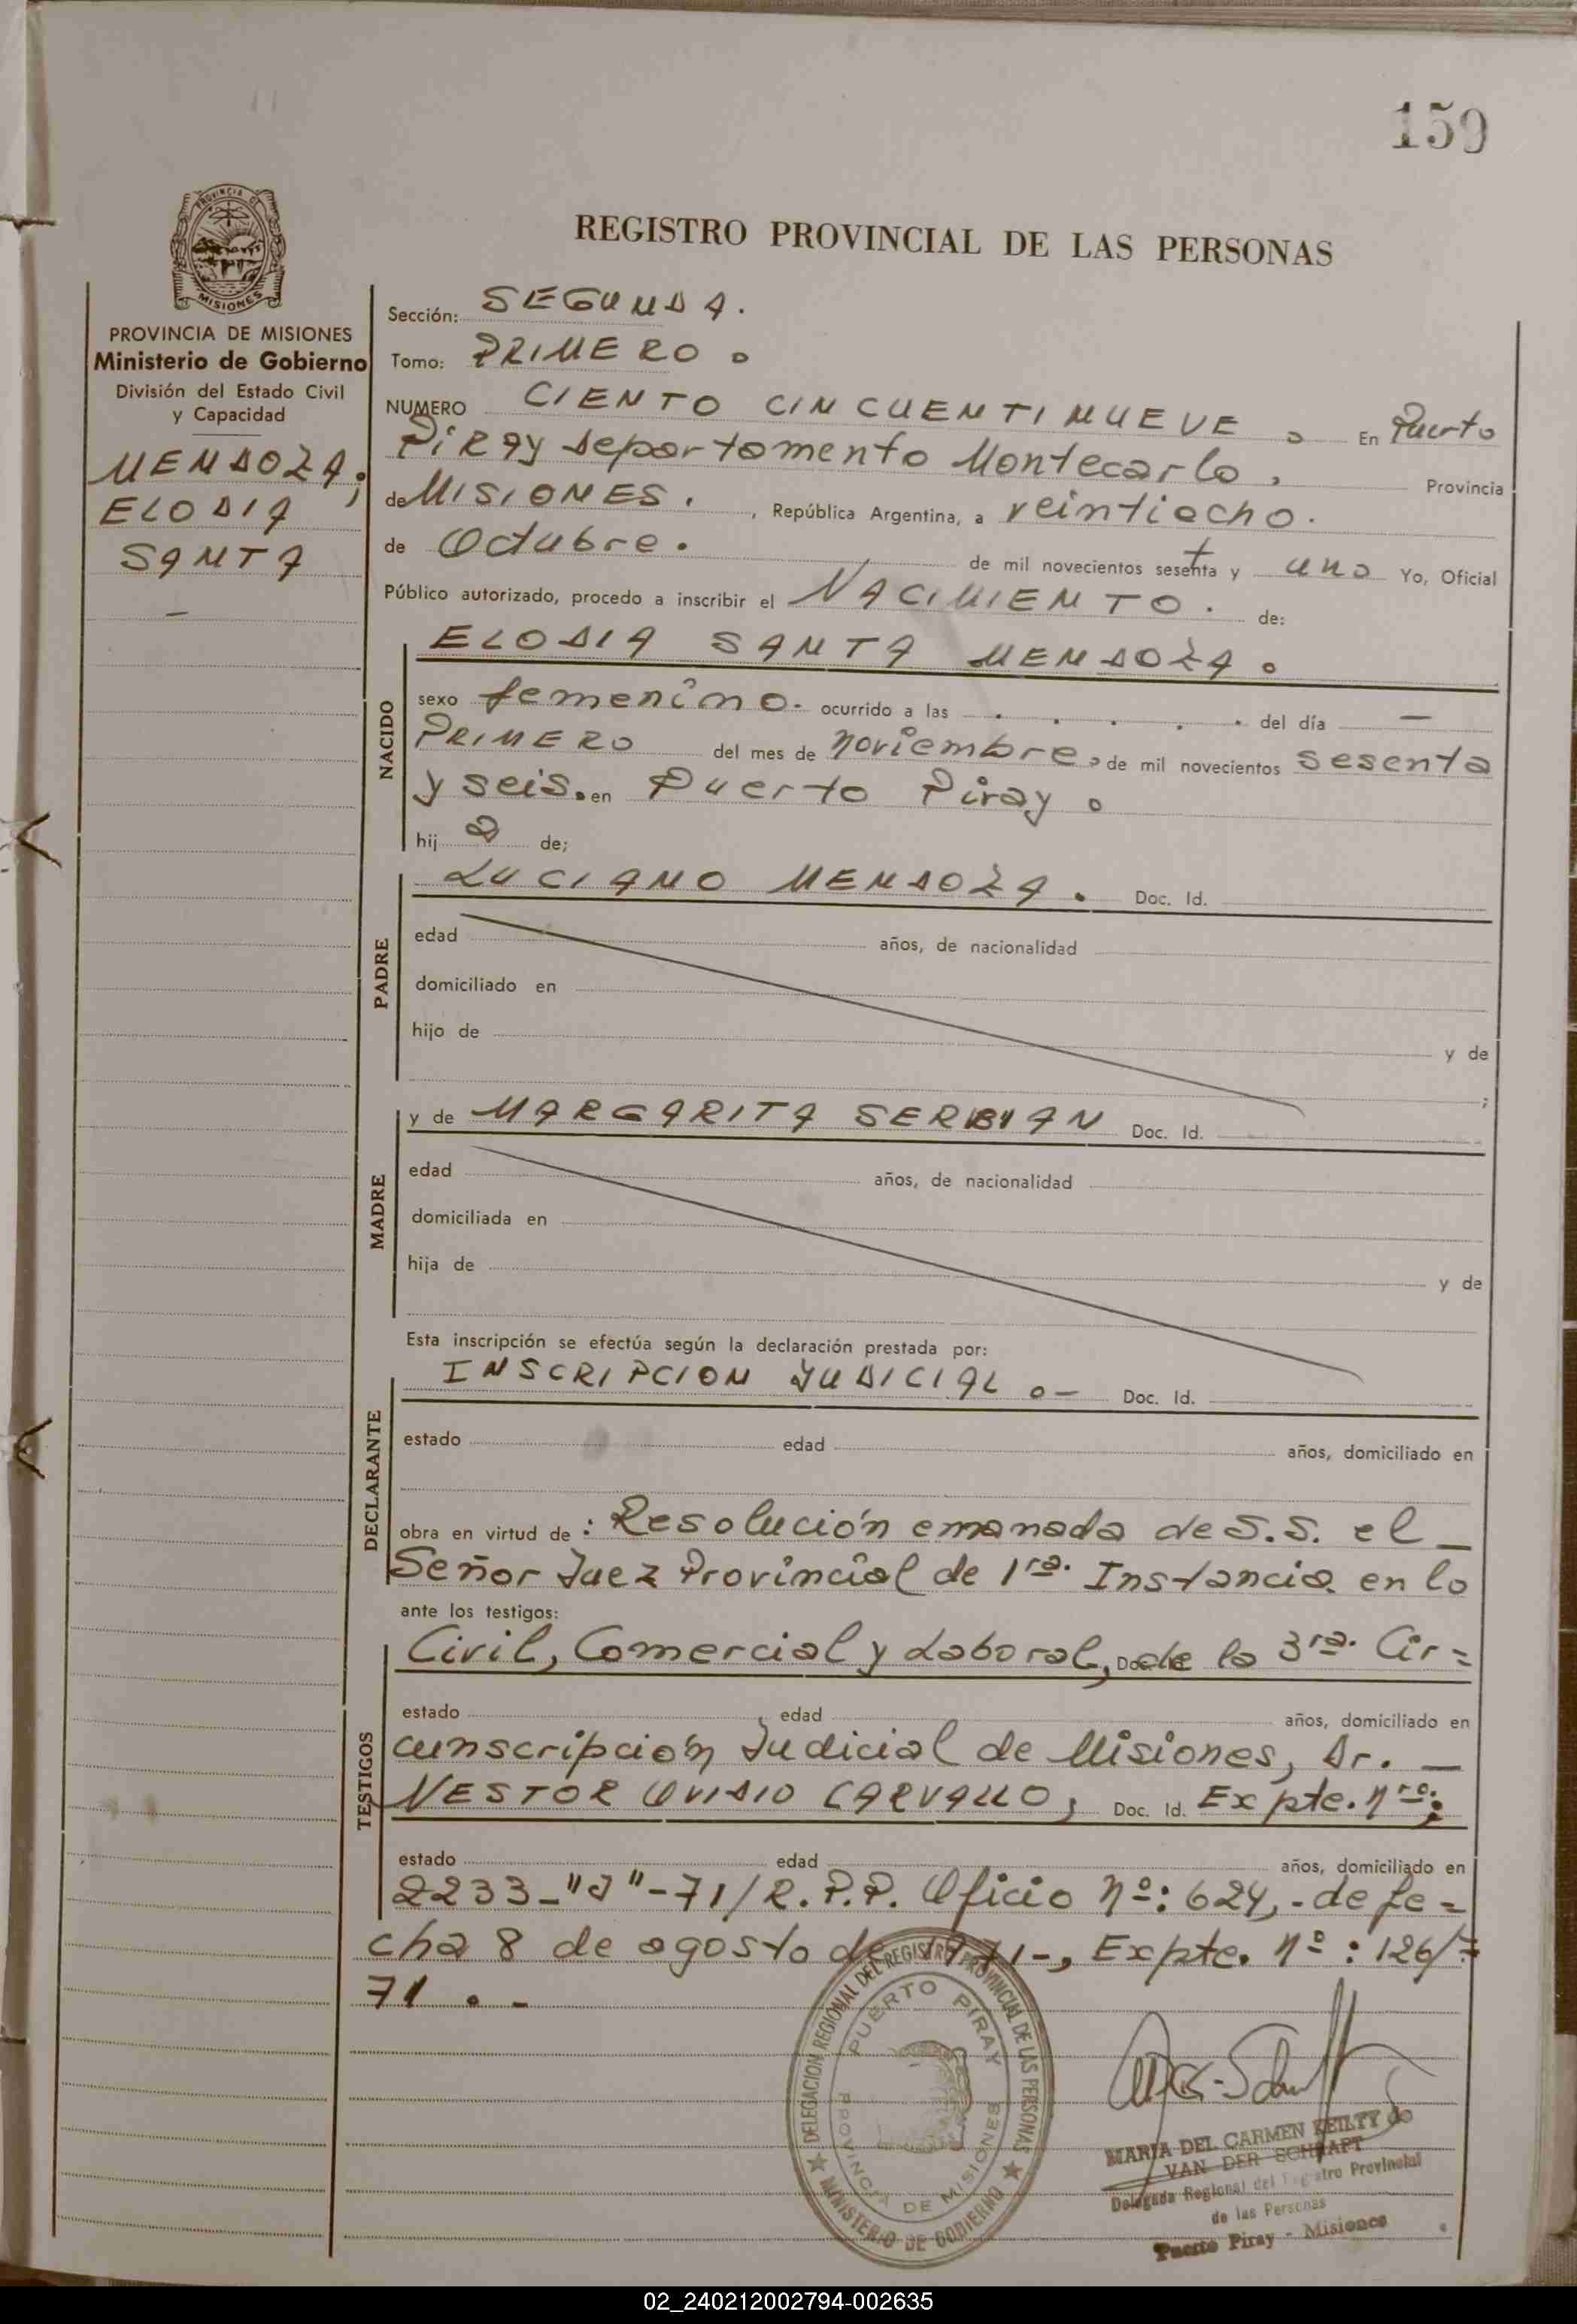 159
PROVINCIA DE
MISIONES
REGISTRO PROVINCIAL DE LAS PERSONAS
PROVINCIA DE MISIONES
Ministerio de Gobierno
División del Estado Civil
y Capacidad
MENDOZA;
ELODIA
SANTA
—
Sección: SEGUNDA.
Tomo: PRIMERO.
NUMERO CIENTO CINCUENTINUEVE. En Puerto
PiRAy Departamento Montecarlo, Provincia
de MISIONES. , República Argentina, a veintiocho.
de Octubre. de mil novecientos sesenta y uno Yo, Oficial
Público autorizado, procedo a inscribir el NACIMIENTO. de:
NACIDO
ELODIA SANTA MENDOZA.
sexo femenino. ocurrido a las . . . . . del día —
PRIMERO del mes de noviembre, de mil novecientos sesenta
y seis. en Puerto Piray.
hij a de;
PADRE
LUCIANO MENDOZA. Doc. Id.
edad años, de nacionalidad
domiciliado en
hijo de y de
;
MADRE
y de MARGARITA SERVIAN Doc. Id.
edad años, de nacionalidad
domiciliada en
hija de y de
Esta inscripción se efectúa según la declaración prestada por:
DECLARANTE
INSCRIPCION JUDICIAL.— Doc. Id.
estado edad años, domiciliado en
obra en virtud de : Resolución emanada de S.S. el —
Señor Juez Provincial de 1ra. Instancia en lo
ante los testigos:
TESTIGOS
Civil, Comercial y Laboral, de la 3ra. Cir=
estado edad años, domiciliado en
cunscripción Judicial de Misiones, Dr. —
NESTOR OVIDIO CARVALLO, Doc. Id. Expte. nro:
estado edad años, domiciliado en
2233-"J"-71/R.P.P. Oficio nº: 624,- de fe=
cha 8 de agosto de 1971-, Expte. nº: 126/=
71 . -
DELEGACION REGIONAL DEL REGISTRO PROVINCIAL DE LAS PERSONAS
PUERTO PIRAY
PROVINCIA DE MISIONES
MINISTERIO DE GOBIERNO
MARIA DEL CARMEN KEILTY de
VAN DER SCHRAFT
Delegada Regional del Registro Provincial
de las Personas
Puerto Piray - Misiones
02_240212002794-002635